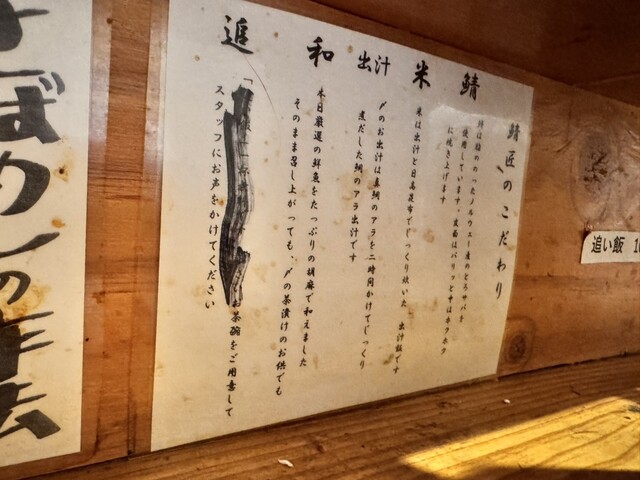 鯖匠のこだわり
鯖
鯖は脂ののったノルウェー産のとろサバを
使用しています。皮面はパリッと中はホクホク
に焼き上げます
米
米は出汁と日高昆布でじっくり炊いた 出汁飯です
出汁
〆のお出汁は真鯛のアラを二時間かけてじっくり
煮だした鯛のアラ出汁です
和
本日厳選の鮮魚をたっぷりの胡麻で和えました
そのまま召し上がっても、〆の茶漬けのお供でも
追
茶碗をご用意して
スタッフにお声をかけてください
追い飯
ばめしの作法